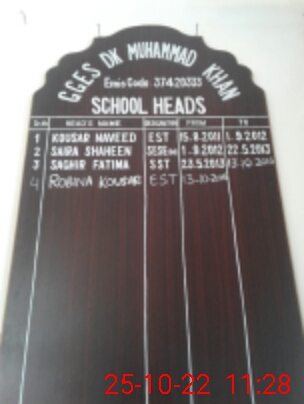 GGES DK MUHAMMAD KHAN
Emis Code: 37420333
SCHOOL HEADS
Sr.# HEAD'S NAME FROM TO
1 KOUSAR NAVEED EST 15.8.2011 1.9.2012
2 SAIRA SHAHEEN SESE 1.9.2012 22.5.2013
3 SAGHIR FATIMA SST 23.5.2013
4 ROBINA KOUSAR EST
25-10-22 11:28